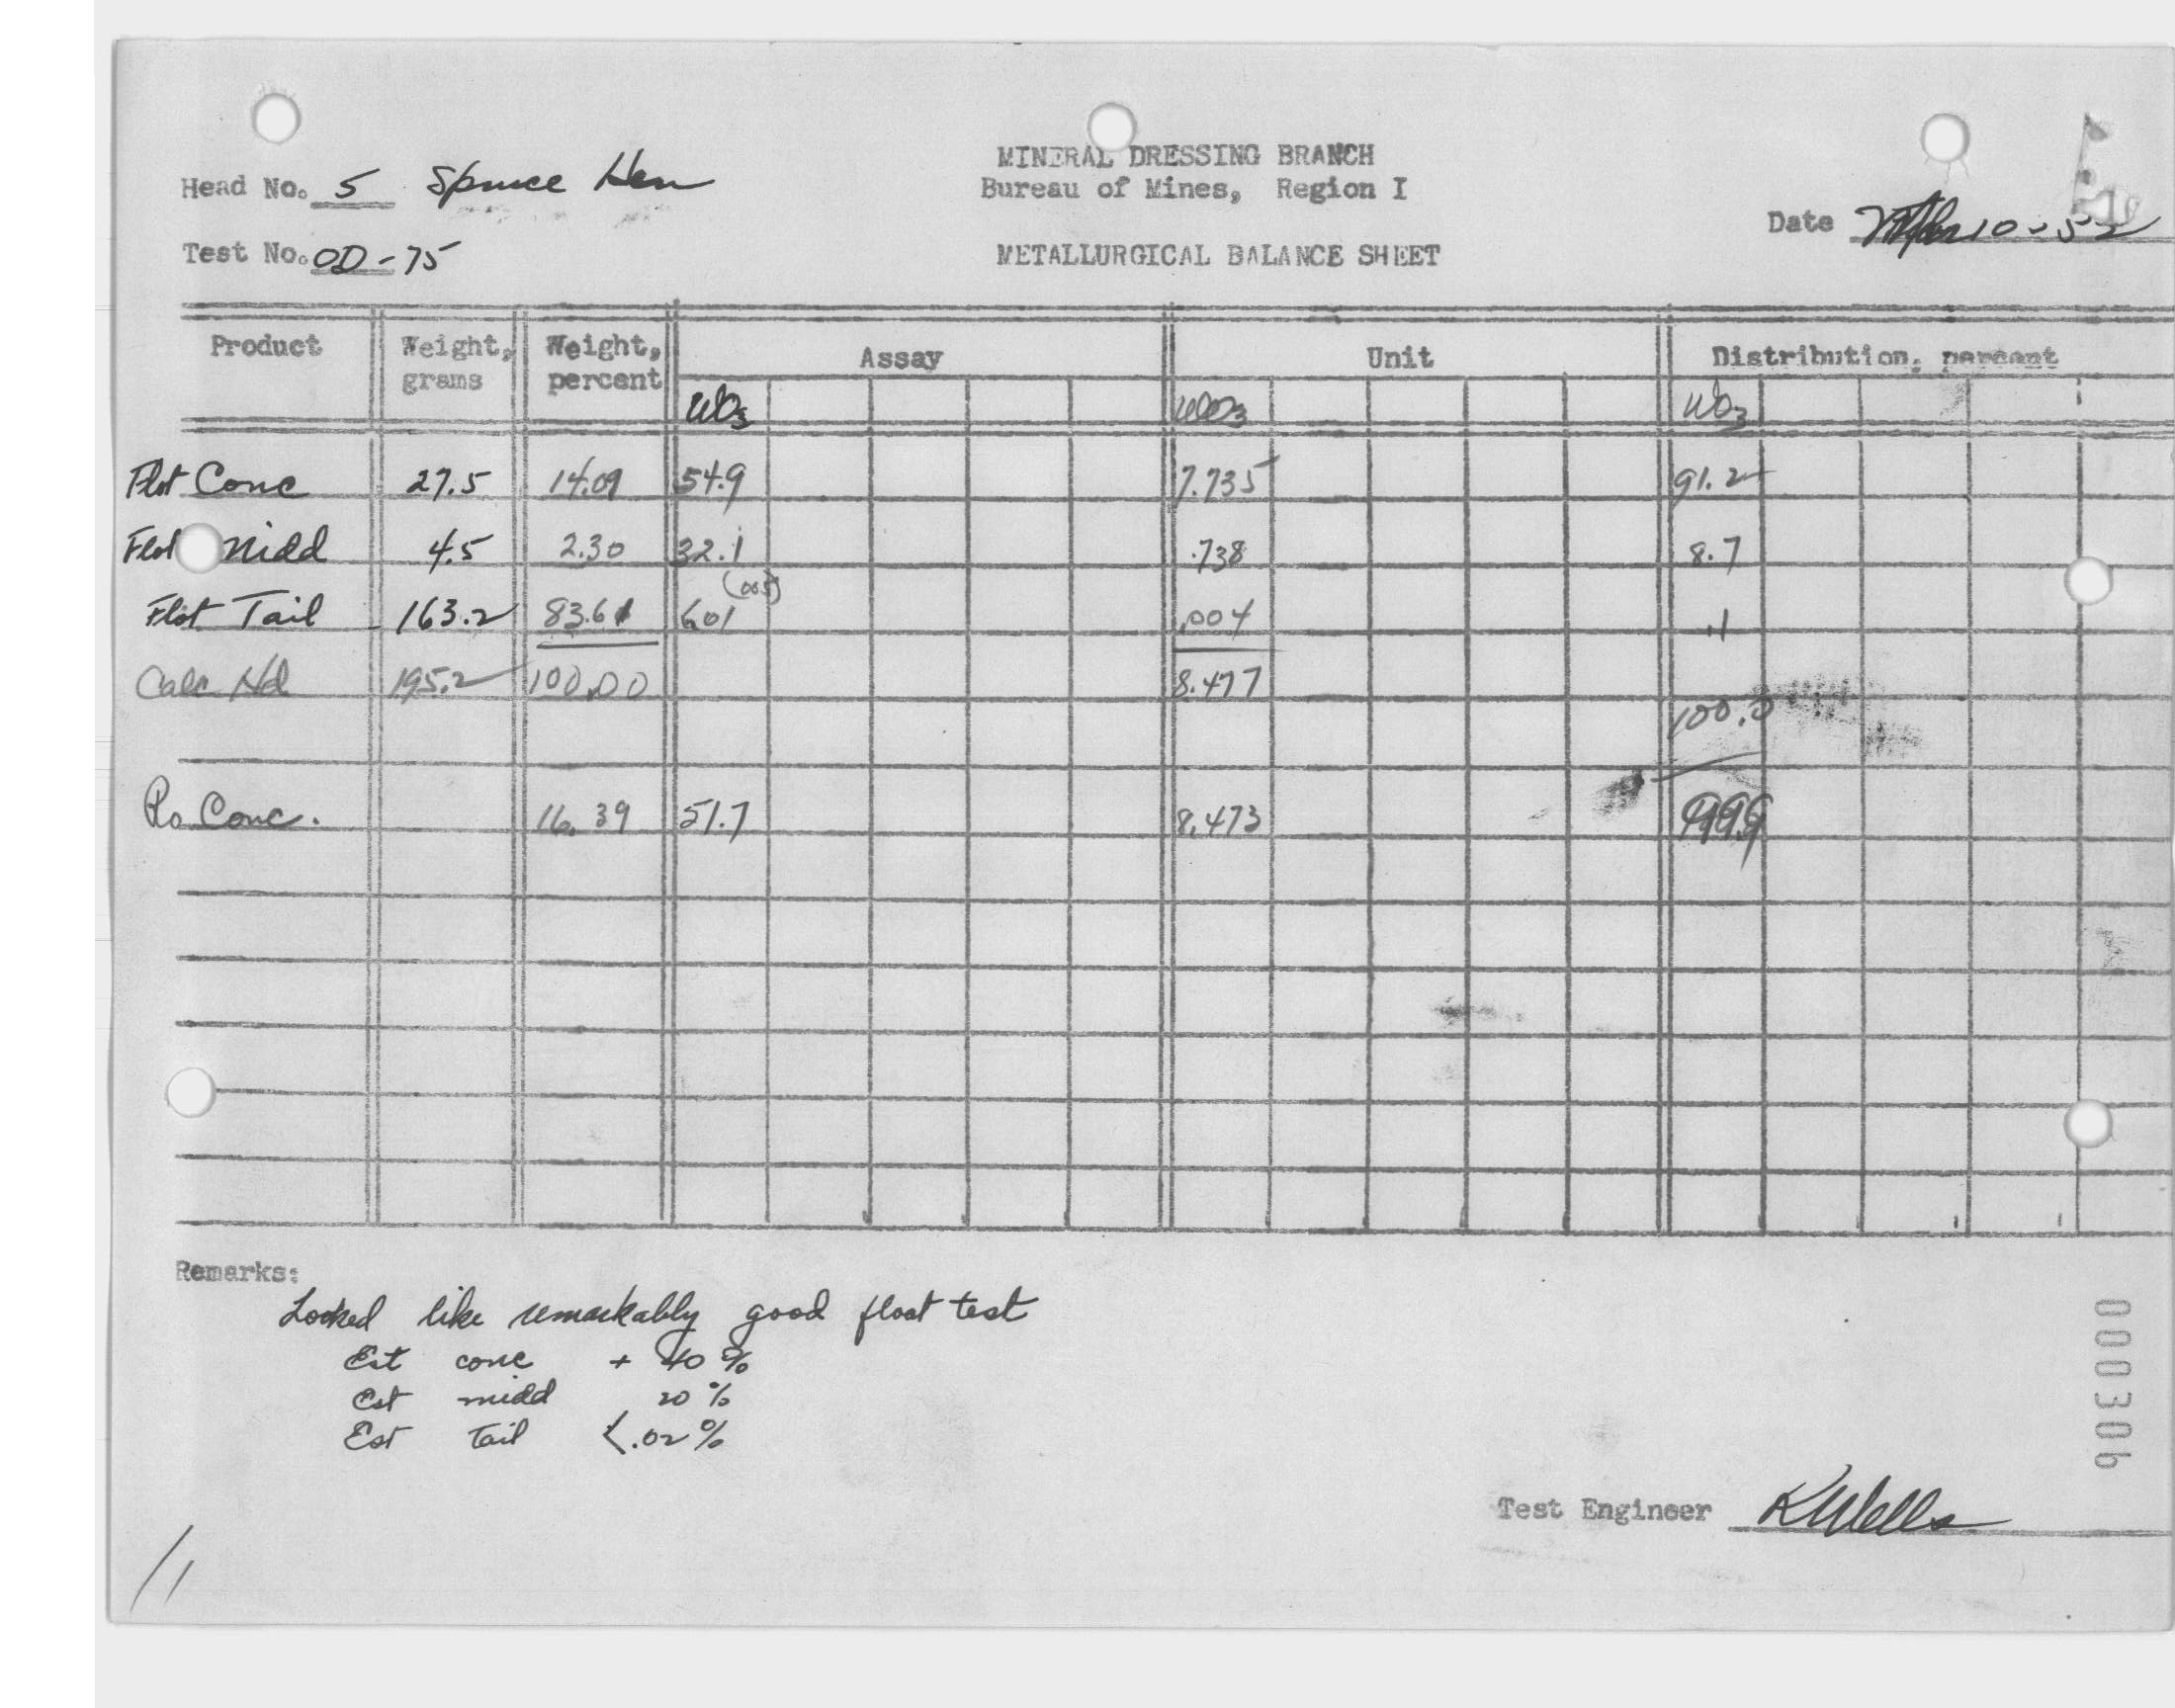 MINERAL DRESSING BRANCH
Head No. 5 Spruce Hen
Bureau of Mines, Region I
Date 10-52
Test No. OD-75
METALLURGICAL BALANCE SHEET
Product Weight, grams Weight, percent Assay Unit Distribution, percent
WO3 WO3 WO3
Flot Conc 27.5 14.09 54.9 7.735 91.2
Flot Midd 4.5 2.30 32.1 .738 8.7
(.005)
Flot Tail 163.2 83.61 <.01 .004 .1
Calc Hd 195.2 100.00 8.477
100.0
Ro Conc. 16.39 51.7 8.473 99.9
Remarks:
Looked like remarkably good float test
Est conc + 40%
Est midd 20%
Est Tail <.02%
000306
Test Engineer RWells